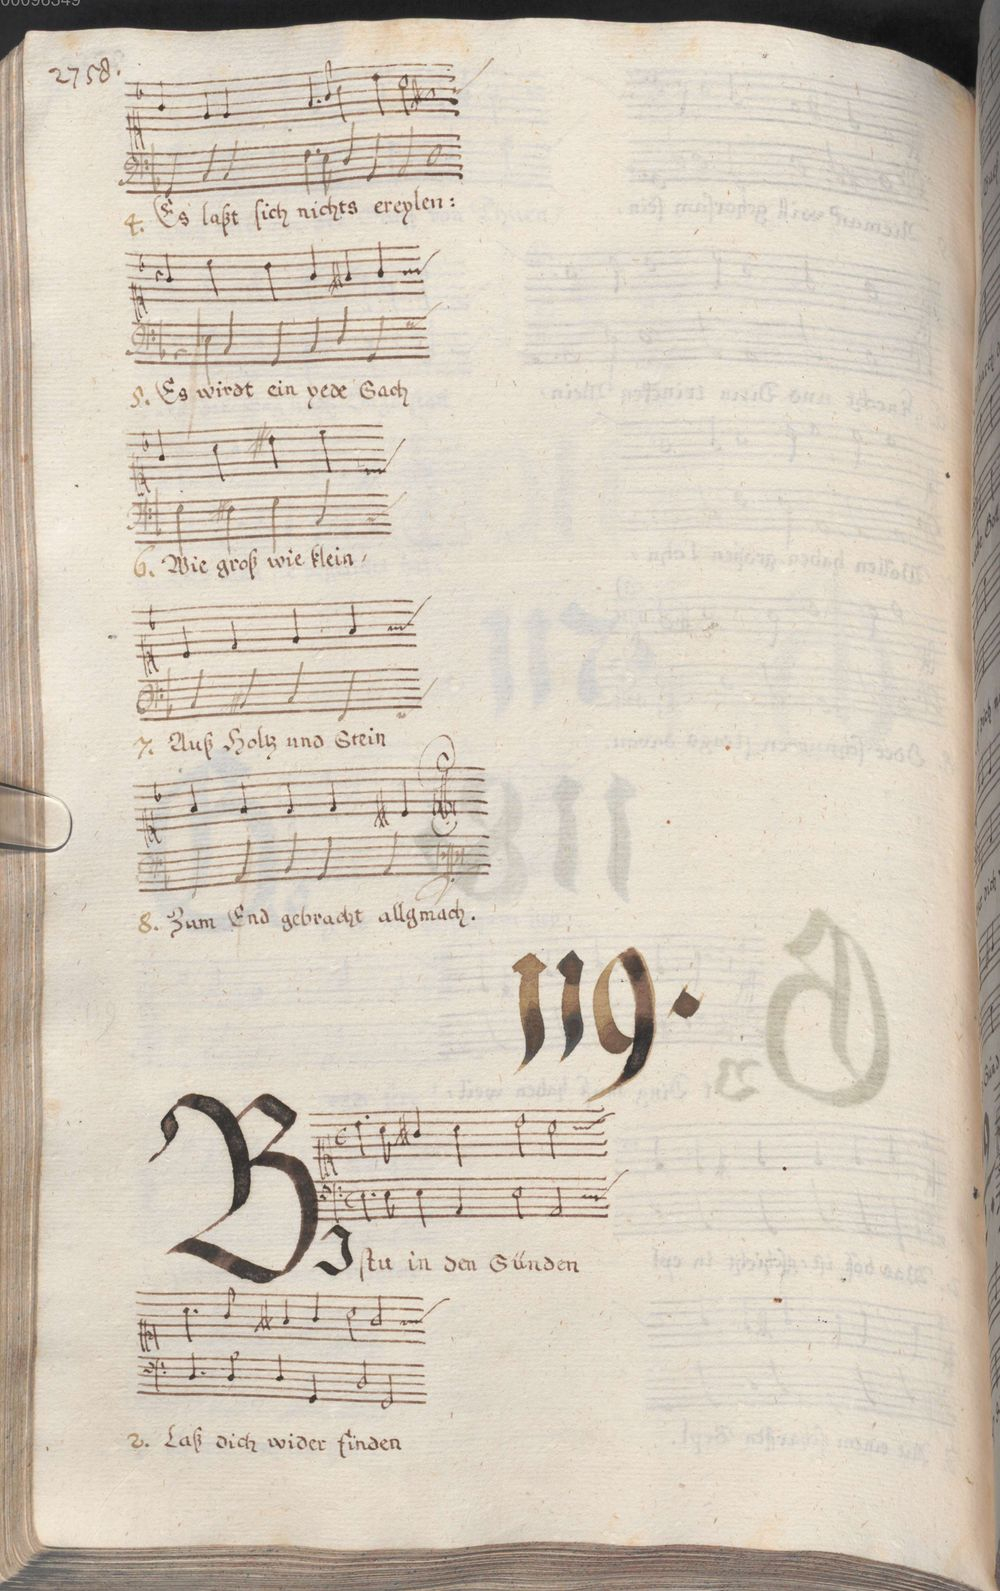 2758.
4. Es laßt sich nichts ereylen:
5. Es wirdt ein yede Sach
6. Wie groß wie klein,
7. Auß Holtz und Stein
8. Zum End gebracht allgmach.
119.
BIstu in den Sünden
2. Laß dich wider finden